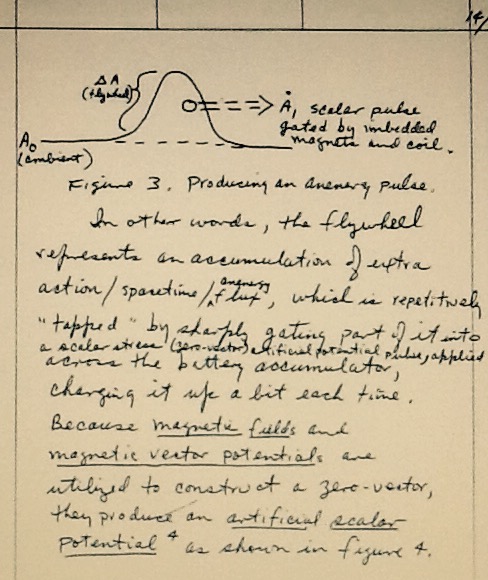 14/
ΔA
(flywheel)
O===> Ȧ, scalar pulse
gated by imbedded
magnets and coil.
A₀
(ambient)
Figure 3. Producing an anenergy pulse.
In other words, the flywheel
represents an accumulation of extra
action/spacetime/anenergy flux, which is repetitively
"tapped" by sharply gating part of it into
a scalar stress (zero-vector) artificial potential pulse, applied
across the battery accumulator,
charging it up a bit each time.
Because magnetic fields and
magnetic vector potentials are
utilized to construct a zero-vector,
they produce an artificial scalar
potential⁴ as shown in figure 4.